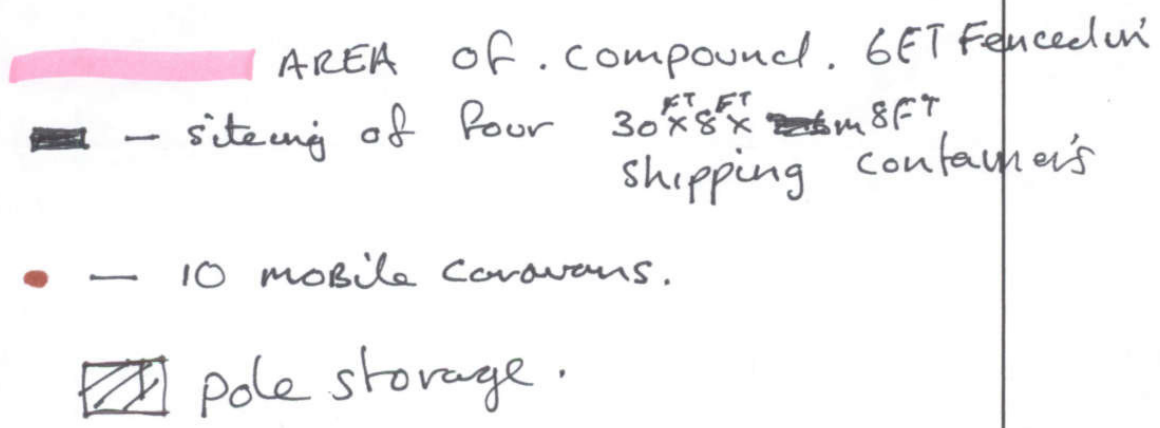 AREA of. compound. 6FT Fenced in
— siteing of four 30FT x 8FT x 8FT
shipping containers
— 10 mobile caravans.
pole storage.